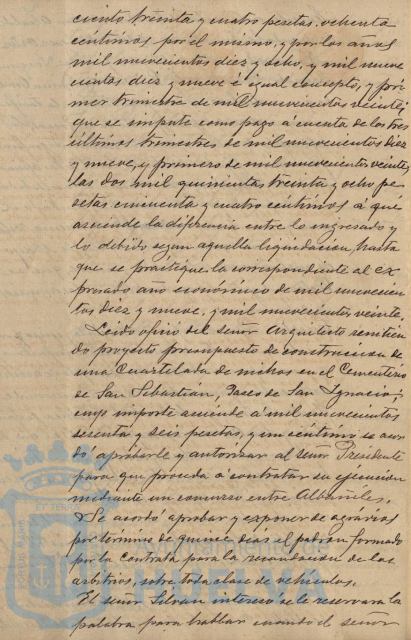 ciento treinta y cuatro pesetas ochenta
céntimos por el mismo, y por los años
mil nuevecientos diez y ocho, y mil nueve
cientos diez y nueve é igual concepto, y pri
mer trimestre de mil nuevecientos veinte,
que se impute como pago á cuenta de los tres
últimos trimestres de mil nuevecientos diez
y nueve, y primero de mil nuevecientos veinte,
las dos mil quinientas treinta y ocho pe
setas cincuenta y cuatro céntimos á que
asciende la diferencia entre lo ingresado y
lo debido segun aquella liquidación, hasta
que se practique la correspondiente al ex
presado año económico de mil nuevecien
tos diez y nueve, y mil nuevecientos veinte.
Leido oficio del señor Arquitecto remitien
do proyecto presupuesto de construcción de
una Cuartelada de nichos en el Cementerio
de San Sebastián, de San Ignacio,
cuyo importe asciende á mil nuevecientas
sesenta y seis pesetas, y un céntimo se acor
dó aprobarle y autorizar al señor Presidente
para que proceda á contratar su ejecución
mediante un concurso entre Albañiles.
Se acordó aprobar y exponer de agravios
por término de quince dias el padrón formado
por la Contrata para la recaudación de los
arbitrios, sobre toda clase de vehículos.
El señor Silván interesó se le reservara la
palabra para hablar cuando el señor